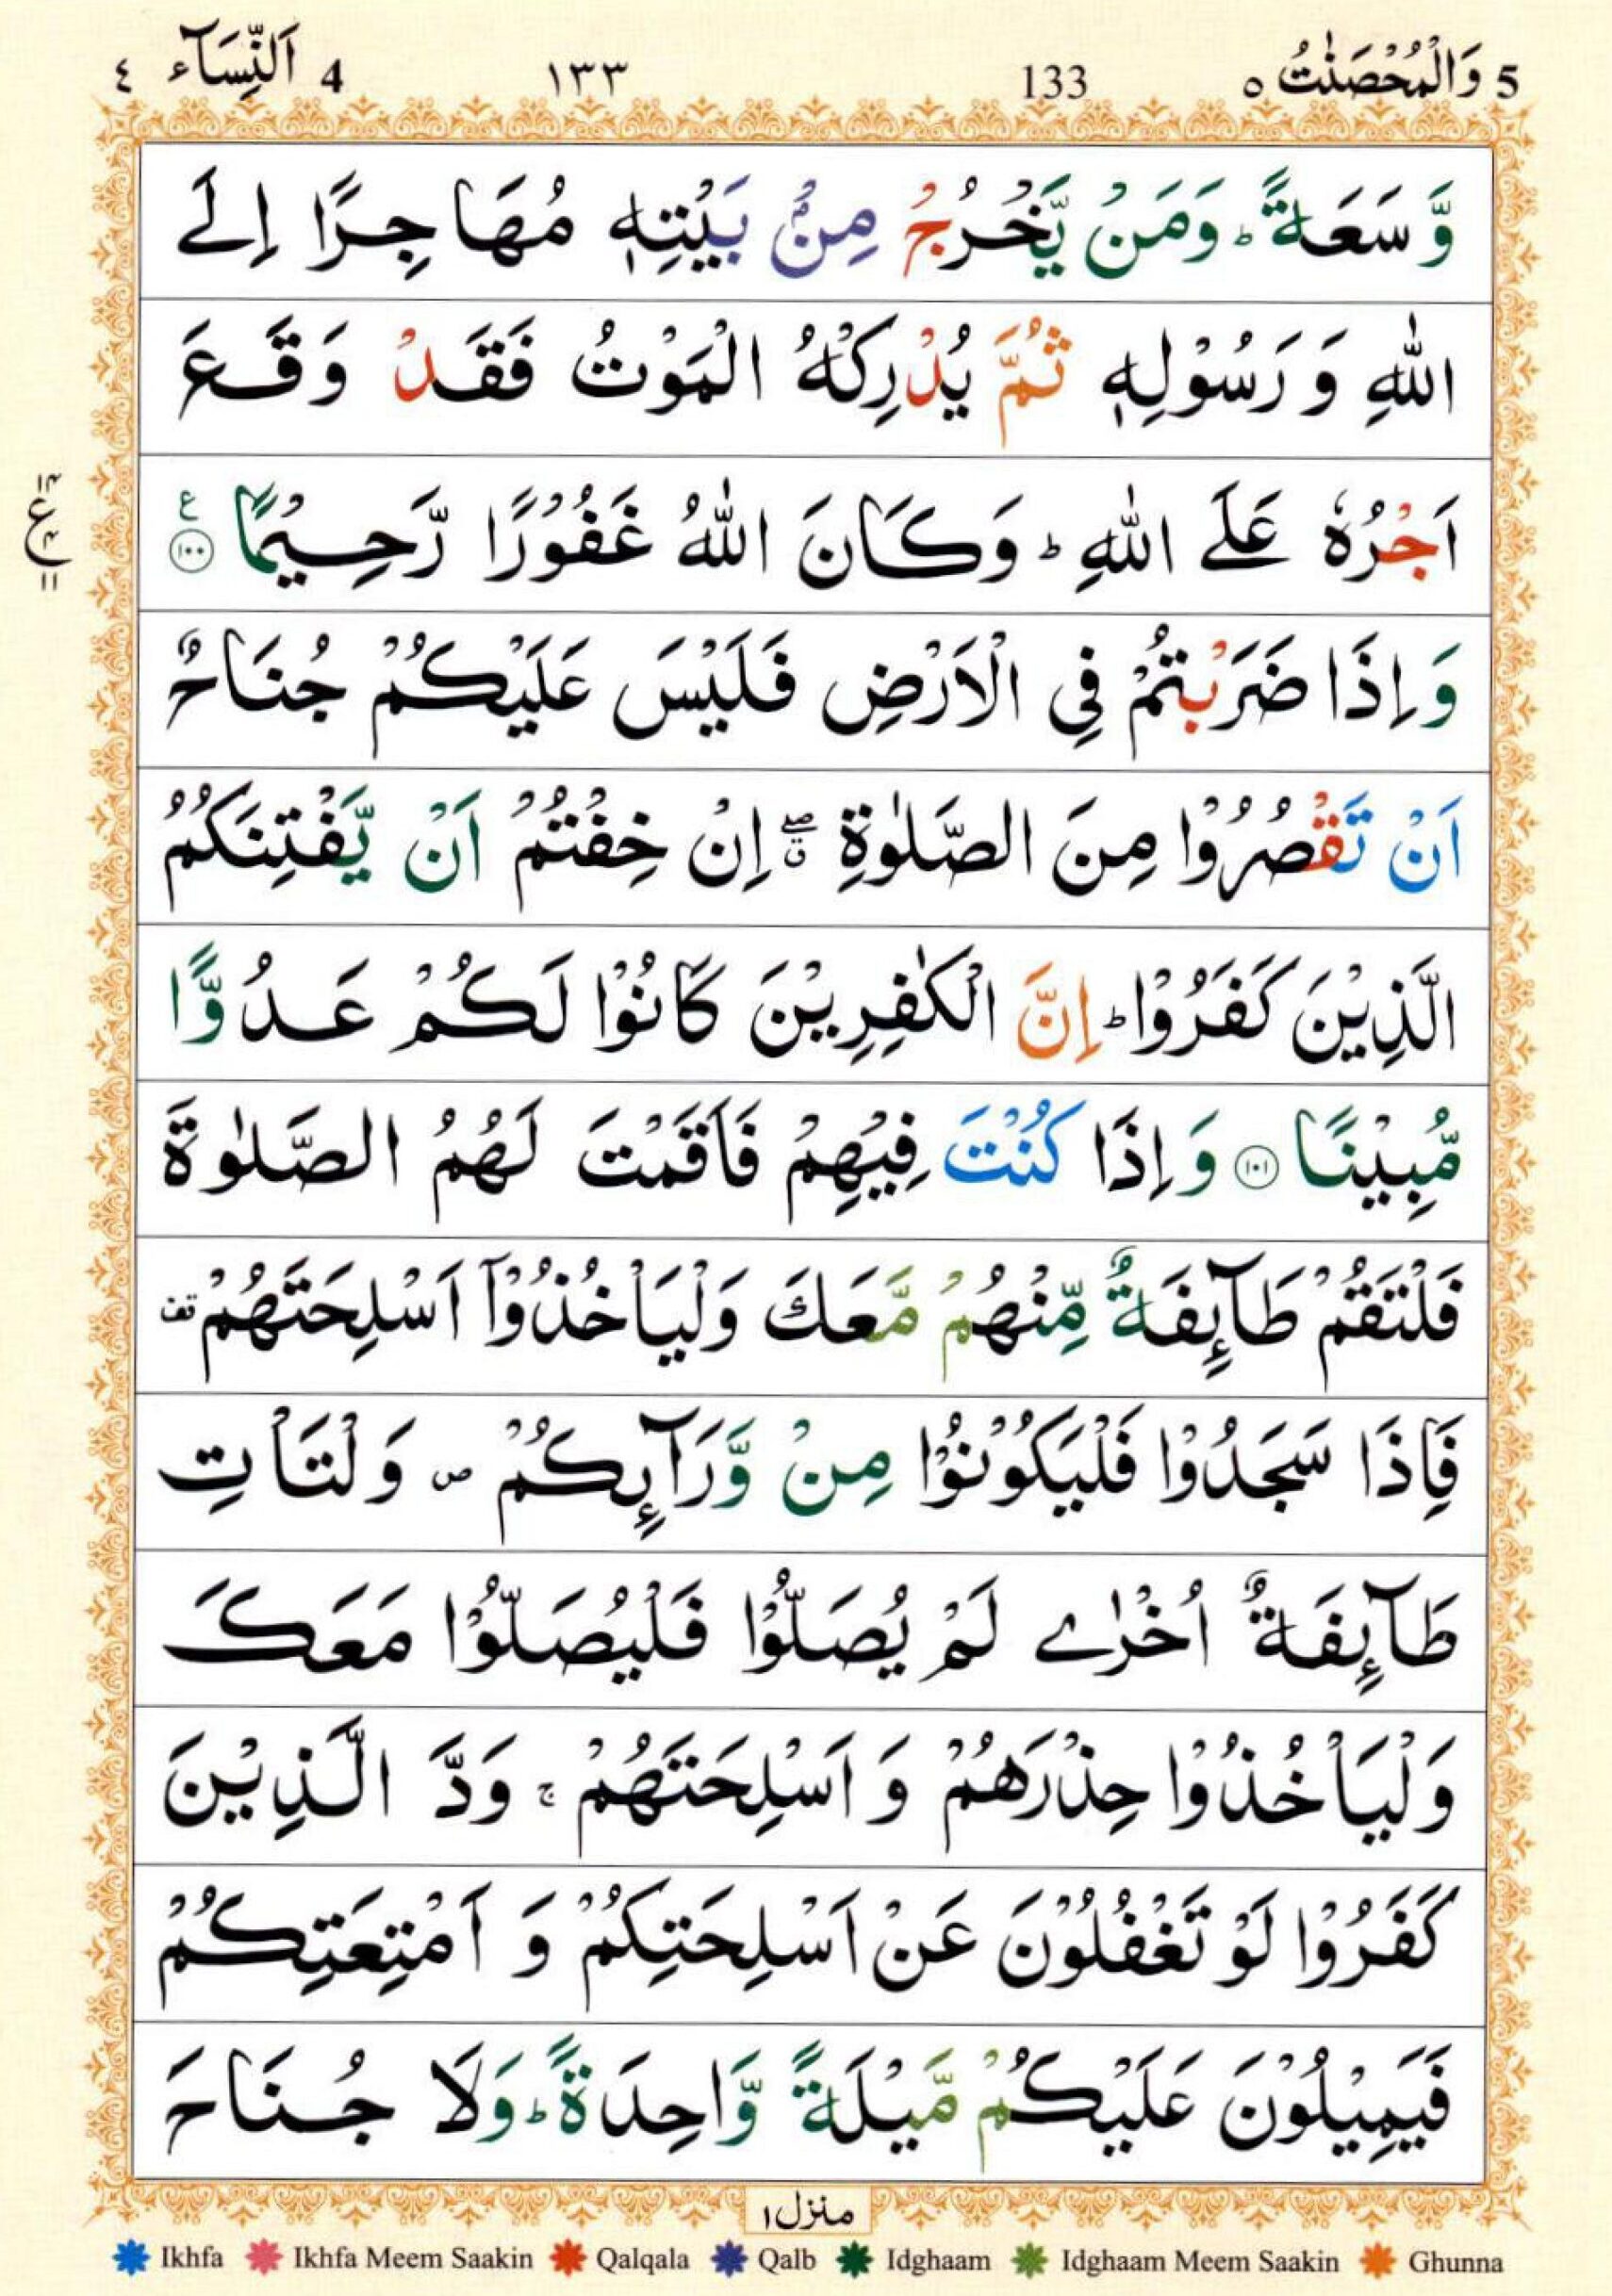 5 وَالْمُحْصَنٰتُ ٥ 133 ١٣٣ 4 اَلنِّسَآء ٤
وَّسَعَةً ؕ وَمَنْ يَّخْرُجْ مِنْۢ بَيْتِهٖ مُهَاجِرًا اِلَى
اللّٰهِ وَرَسُوْلِهٖ ثُمَّ يُدْرِكْهُ الْمَوْتُ فَقَدْ وَقَعَ
اَجْرُهٗ عَلَى اللّٰهِ ؕ وَكَانَ اللّٰهُ غَفُوْرًا رَّحِيْمًا ۧ ١٠٠
١٤ ع ٤ ١١
وَاِذَا ضَرَبْتُمْ فِى الْاَرْضِ فَلَيْسَ عَلَيْكُمْ جُنَاحٌ
اَنْ تَقْصُرُوْا مِنَ الصَّلٰوةِ ۖ ق اِنْ خِفْتُمْ اَنْ يَّفْتِنَكُمُ
الَّذِيْنَ كَفَرُوْا ؕ اِنَّ الْكٰفِرِيْنَ كَانُوْا لَكُمْ عَدُوًّا
مُّبِيْنًا ١٠١ وَاِذَا كُنْتَ فِيْهِمْ فَاَقَمْتَ لَهُمُ الصَّلٰوةَ
فَلْتَقُمْ طَآئِفَةٌ مِّنْهُمْ مَّعَكَ وَلْيَاْخُذُوْۤا اَسْلِحَتَهُمْ قف
فَاِذَا سَجَدُوْا فَلْيَكُوْنُوْا مِنْ وَّرَآئِكُمْ ص وَلْتَاْتِ
طَآئِفَةٌ اُخْرٰى لَمْ يُصَلُّوْا فَلْيُصَلُّوْا مَعَكَ
وَلْيَاْخُذُوْا حِذْرَهُمْ وَاَسْلِحَتَهُمْ ۚ وَدَّ الَّذِيْنَ
كَفَرُوْا لَوْ تَغْفُلُوْنَ عَنْ اَسْلِحَتِكُمْ وَاَمْتِعَتِكُمْ
فَيَمِيْلُوْنَ عَلَيْكُمْ مَّيْلَةً وَّاحِدَةً ؕ وَلَا جُنَاحَ
منزل ١
Ikhfa Ikhfa Meem Saakin Qalqala Qalb Idghaam Idghaam Meem Saakin Ghunna